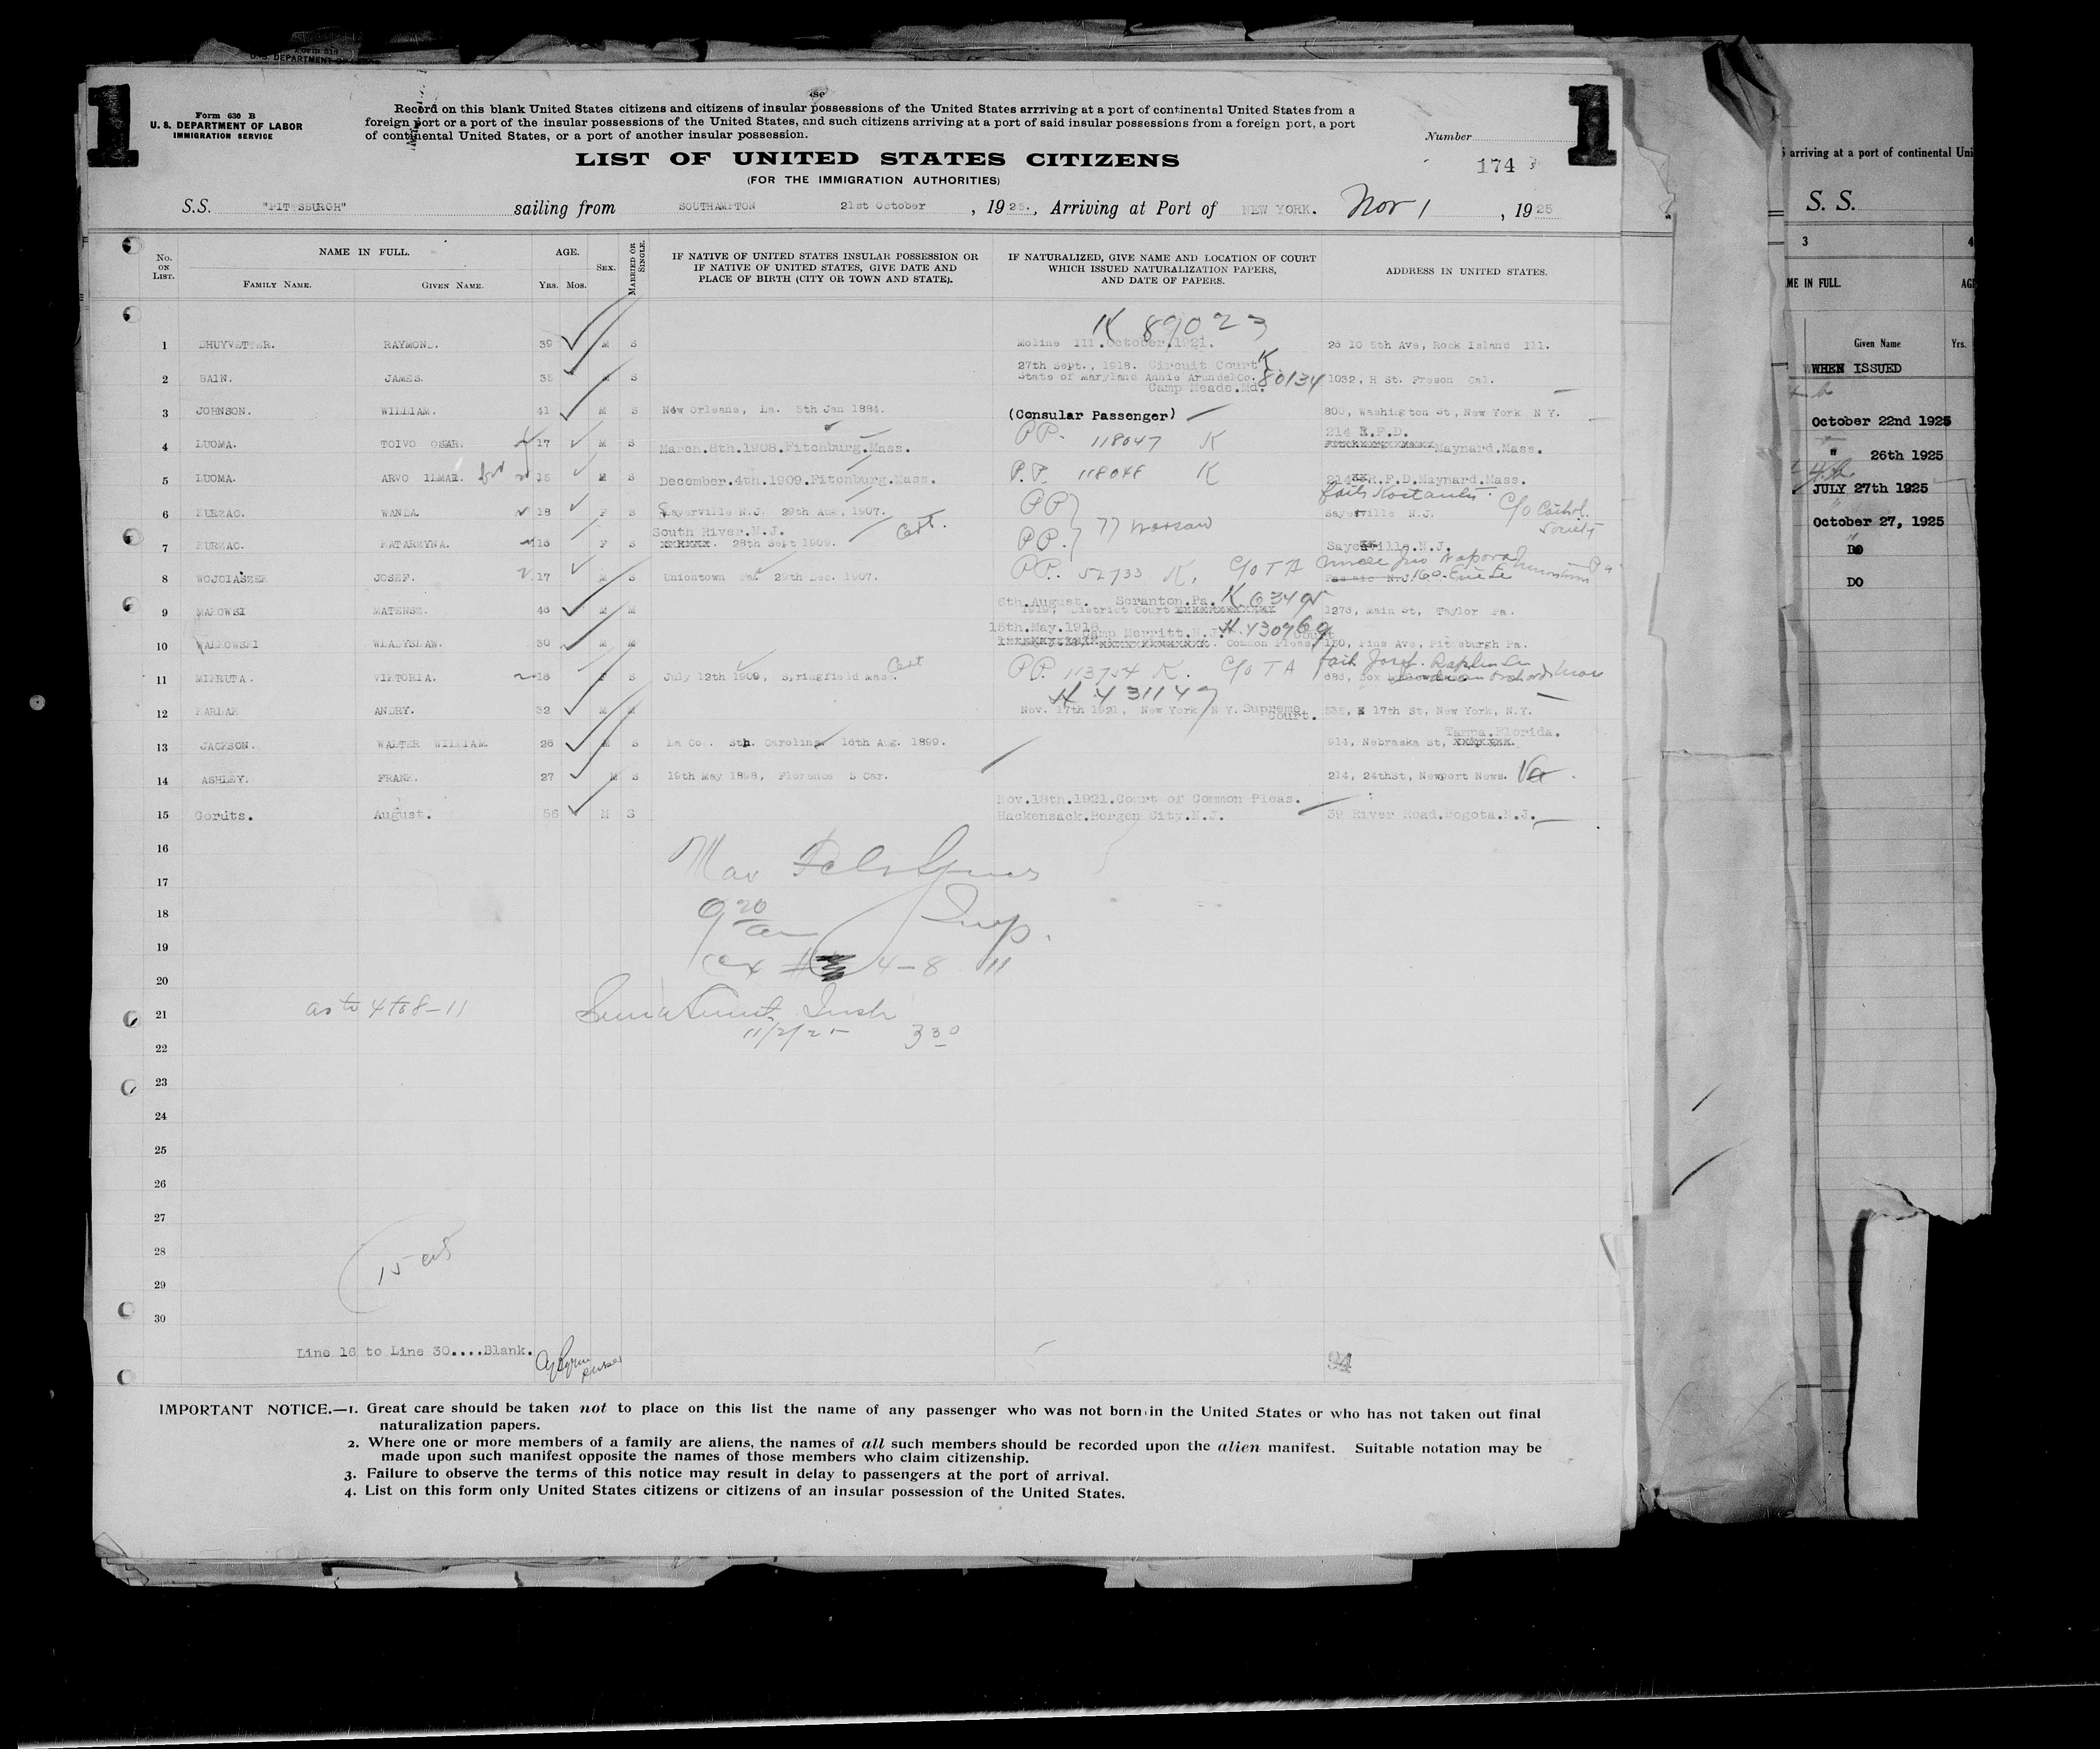 Form 630 B
U. S. DEPARTMENT OF LABOR
IMMIGRATION SERVICE
1
1
Record on this blank United States citizens and citizens of insular possessions of the United States arrriving at a port of continental United States from a
foreign port or a port of the insular possessions of the United States, and such citizens arriving at a port of said insular possessions from a foreign port, a port
of continental United States, or a port of another insular possession.
Number
LIST OF UNITED STATES CITIZENS
174
(FOR THE IMMIGRATION AUTHORITIES)
S.S. "PITTSBURGH" sailing from SOUTHAMPTON 21st October , 1925., Arriving at Port of NEW YORK. Nov 1 , 1925
No. ON LIST. NAME IN FULL. AGE. SEX. MARRIED OR SINGLE. IF NATIVE OF UNITED STATES INSULAR POSSESSION OR IF NATIVE OF UNITED STATES, GIVE DATE AND PLACE OF BIRTH (CITY OR TOWN AND STATE). IF NATURALIZED, GIVE NAME AND LOCATION OF COURT WHICH ISSUED NATURALIZATION PAPERS, AND DATE OF PAPERS. ADDRESS IN UNITED STATES.
FAMILY NAME. GIVEN NAME. Yrs. Mos.
K 89023
1 DHUYVETTER. RAYMOND. 39 M S Moline Ill. October, 1921. 26 10 5th Ave, Rock Island Ill.
27th Sept., 1918. Circuit Court K
2 BAIN. JAMES. 35 M S State of Maryland Annie Arundel Co. 80134 1032, H St. Freson Cal.
Camp Meade. Md.
3 JOHNSON. WILLIAM. 41 M S New Orleans, La. 5th Jan 1884. (Consular Passenger) 800, Washington St, New York N Y.
214 R.F.D.
4 LUOMA. TOIVO OSKAR. 17 M S March.8th.1908.Fitchburg.Mass. PP. 118047 K Maynard.Mass.
5 LUOMA. ARVO ILMAR. 15 M S December.4th.1909.Fitchburg.Mass. P.P. 118048 K 214 R.F.D.Maynard.Mass.
6 WANDA. 18 F S Sayerville N.J. 29th Aug, 1907. PP Sayerville N.J. C/o Cathol. Society
South River.N.J. 77 Warsaw
7 KATARZYNA. 16 F S 28th Sept 1909. Cert. PP. Sayerville.N.J.
8 WOJCIASZEK JOSEF. 17 M S Uniontown Pa. 29th Dec. 1907. PP. 52733 K, C/o T A Uncle
6th.August. Scranton.Pa. K 63495
9 MAKOWSI MATEUSZ. 46 M M 1919, District Court 1276, Main St, Taylor Pa.
18th.May.1918 Camp Merritt.N.J. 430769
10 WALKOWSKI WLADYSLAW. 30 M M Common Pleas Court 150, Pine Ave, Pittsburgh Pa.
11 VIKTORIA. 16 F S July 12th 1909, Springfield Mass. Cert PP. 113754 K. C/o T A Josef.
431147
12 ANDRY. 32 M M Nov. 17th 1921, New York N Y. Supreme Court. 535, E 17th St, New York, N.Y.
Tampa.Florida.
13 JACKSON. WALTER WILLIAM. 26 M S La Co. Sth. Carolina 16th Aug. 1899. 914, Nebraska St,
14 ASHLEY. FRANK. 27 M S 19th May 1898, Florence S Car. 214, 24thSt, Newport News. Va.
Nov.18th.1921.Court of Common Pleas.
15 Gordts. August. 56 M S Hackensack.Bergen City.N.J. 39 River Road.Bogota.N.J.
16
17
18 9 20 am Insp.
19
20 4-8 11
21 as to 4 to 8-11
22 11/2/25 3 30
23
24
25
26
27
28
29
30
Line 16 to Line 30....Blank.
94
IMPORTANT NOTICE.—1. Great care should be taken not to place on this list the name of any passenger who was not born in the United States or who has not taken out final
naturalization papers.
2. Where one or more members of a family are aliens, the names of all such members should be recorded upon the alien manifest. Suitable notation may be
made upon such manifest opposite the names of those members who claim citizenship.
3. Failure to observe the terms of this notice may result in delay to passengers at the port of arrival.
4. List on this form only United States citizens or citizens of an insular possession of the United States.
arriving at a port of continental Uni
S. S.
3 4
ME IN FULL. AG
Given Name Yrs.
WHEN ISSUED
October 22nd 1925
" 26th 1925
JULY 27th 1925
October 27, 1925
DO
DO